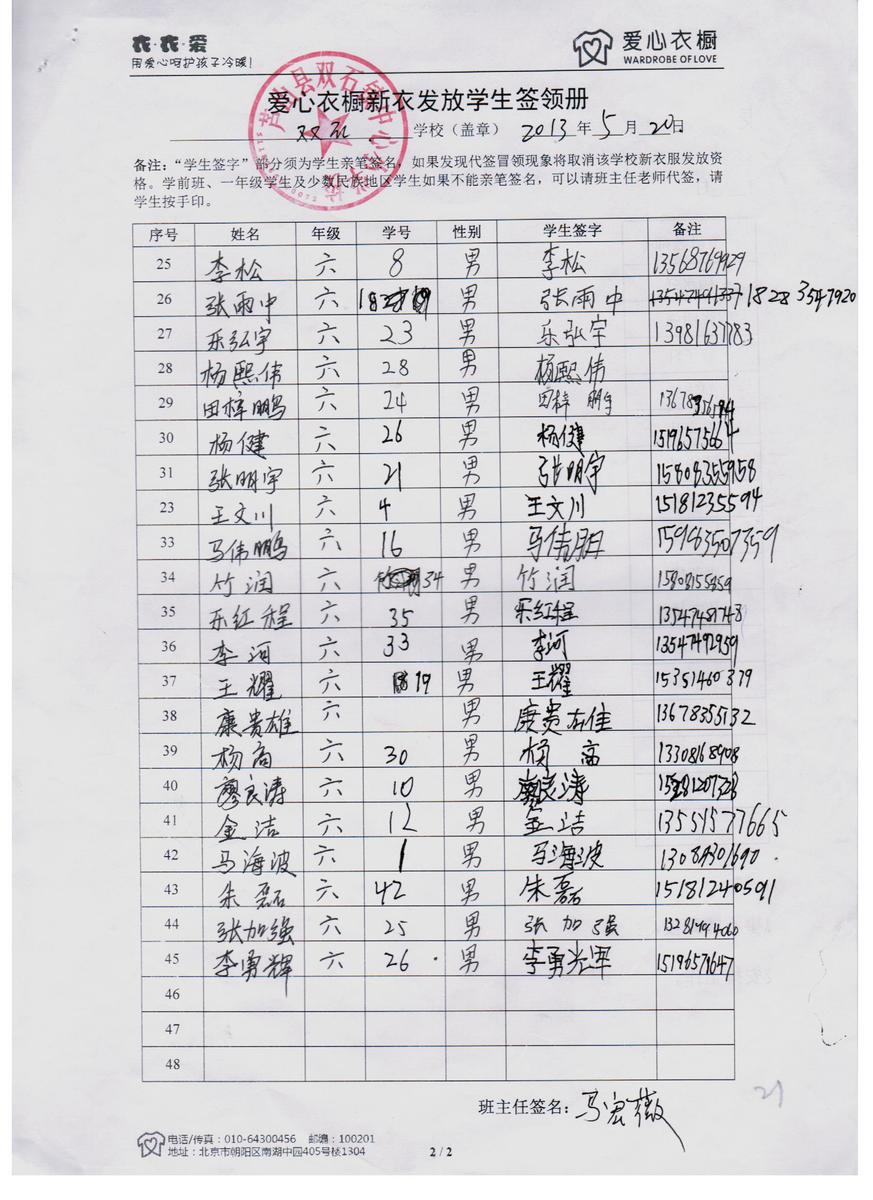 衣·衣·爱
用爱心呵护孩子冷暖!
爱心衣橱
WARDROBE OF LOVE
爱心衣橱新衣发放学生签领册
双石 学校（盖章） 2013 年 5 月 20 日
备注：“学生签字”部分须为学生亲笔签名，如果发现代签冒领现象将取消该学校新衣服发放资
格。学前班、一年级学生及少数民族地区学生如果不能亲笔签名，可以请班主任老师代签，请
学生按手印。
序号 姓名 年级 学号 性别 学生签字 备注
25 李松 六 8 男 李松 13568769929
26 张雨中 六 男 张雨中 18283547920
27 乐弘宇 六 23 男 乐弘宇 13981637783
28 杨熙伟 六 28 男 杨熙伟
29 田梓鹏 六 24 男 田梓鹏
30 杨健 六 26 男 杨健 15196575664
31 张明宇 六 21 男 张明宇 15808355958
23 王文川 六 4 男 王文川 15181235594
33 马伟鹏 六 16 男 马伟朋 15983507359
34 竹润 六 34 男 竹润 15808155859
35 乐红程 六 35 男 乐红程 13547487748
36 李河 六 33 男 李河 13547492959
37 王耀 六 19 男 王耀 15351460379
38 康贵雄 六 男 康贵雄 13678355132
39 杨高 六 30 男 杨高 13308168908
40 廖良涛 六 10 男 廖良涛
41 金洁 六 12 男 金洁 13551577665
42 马海波 六 1 男 马海波
43 朱磊 六 42 男 朱磊 15181240591
44 张加强 六 25 男 张加强
45 李勇辉 六 26 男 李勇辉 15196579647
46
47
48
21
班主任签名：马宏薇
电话/传真：010-64300456 邮编：100201
地址：北京市朝阳区南湖中园405号楼1304
2 / 2